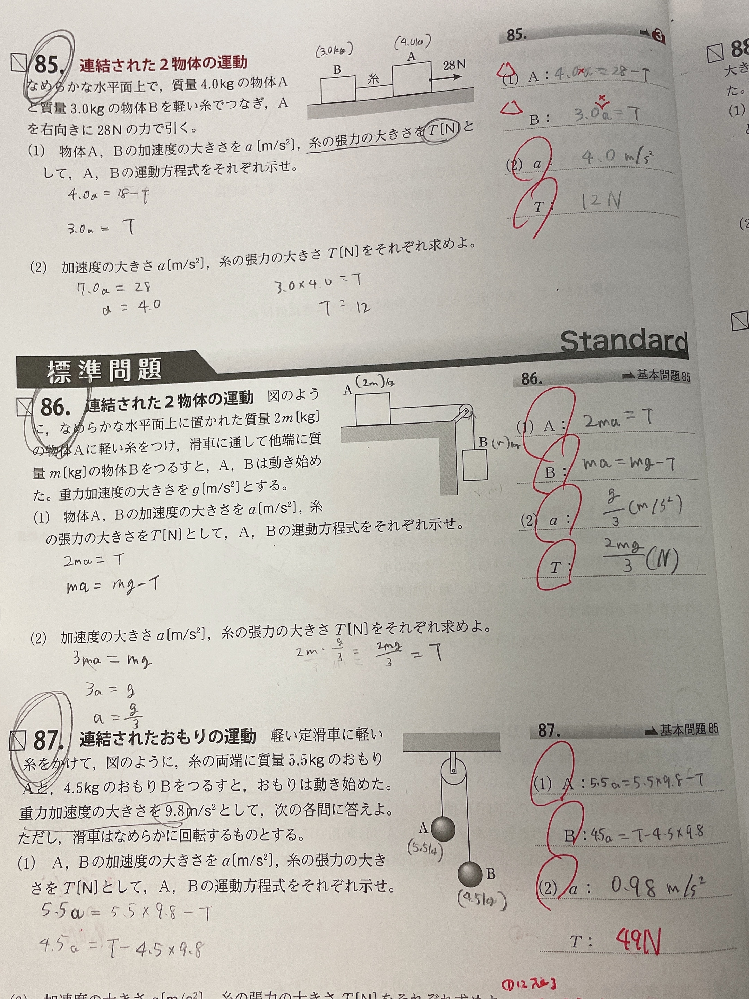 85. 連結された2物体の運動
なめらかな水平面上で，質量4.0kgの物体A
と質量3.0kgの物体Bを軽い糸でつなぎ，A
を右向きに28Nの力で引く。
(3.0kg)
B
糸
(4.0kg)
A
28N
(1) 物体A，Bの加速度の大きさをa〔m/s²〕，糸の張力の大きさをT〔N〕と
して，A，Bの運動方程式をそれぞれ示せ。
4.0a = 28-T
3.0a = T
(2) 加速度の大きさa〔m/s²〕，糸の張力の大きさT〔N〕をそれぞれ求めよ。
7.0a = 28
a = 4.0
3.0×4.0 = T
T = 12
85.
(1) A: 4.0a = 28-T
B: 3.0a = T
(2) a: 4.0 m/s²
T: 12N
Standard
標準問題
86. 連結された2物体の運動 図のよう
に，なめらかな水平面上に置かれた質量2m〔kg〕
の物体Aに軽い糸をつけ，滑車に通して他端に質
量m〔kg〕の物体Bをつるすと，A，Bは動き始め
た。重力加速度の大きさをg〔m/s²〕とする。
A (2m)kg
B (m)kg
(1) 物体A，Bの加速度の大きさをa〔m/s²〕，糸
の張力の大きさをT〔N〕として，A，Bの運動方程式をそれぞれ示せ。
2ma = T
ma = mg-T
(2) 加速度の大きさa〔m/s²〕，糸の張力の大きさT〔N〕をそれぞれ求めよ。
3ma = mg
3a = g
a = g/3
2m・g/3 = 2mg/3 = T
86.
基本問題85
(1) A: 2ma = T
B: ma = mg-T
(2) a: g/3 (m/s²)
T: 2mg/3 (N)
87. 連結されたおもりの運動 軽い定滑車に軽い
糸をかけて，図のように，糸の両端に質量5.5kgのおもり
Aと，4.5kgのおもりBをつるすと，おもりは動き始めた。
重力加速度の大きさを9.8m/s²として，次の各問に答えよ。
ただし，滑車はなめらかに回転するものとする。
A
(5.5kg)
B
(4.5kg)
(1) A，Bの加速度の大きさをa〔m/s²〕，糸の張力の大き
さをT〔N〕として，A，Bの運動方程式をそれぞれ示せ。
5.5a = 5.5×9.8-T
4.5a = T-4.5×9.8
87.
基本問題85
(1) A: 5.5a = 5.5×9.8-T
B: 45a = T-4.5×9.8
(2) a: 0.98 m/s²
T: 49N
加速度の大きさa〔m/s²〕，糸の張力の大きさT〔N〕をそれぞれ求めよ
88
大き
た。
(1)